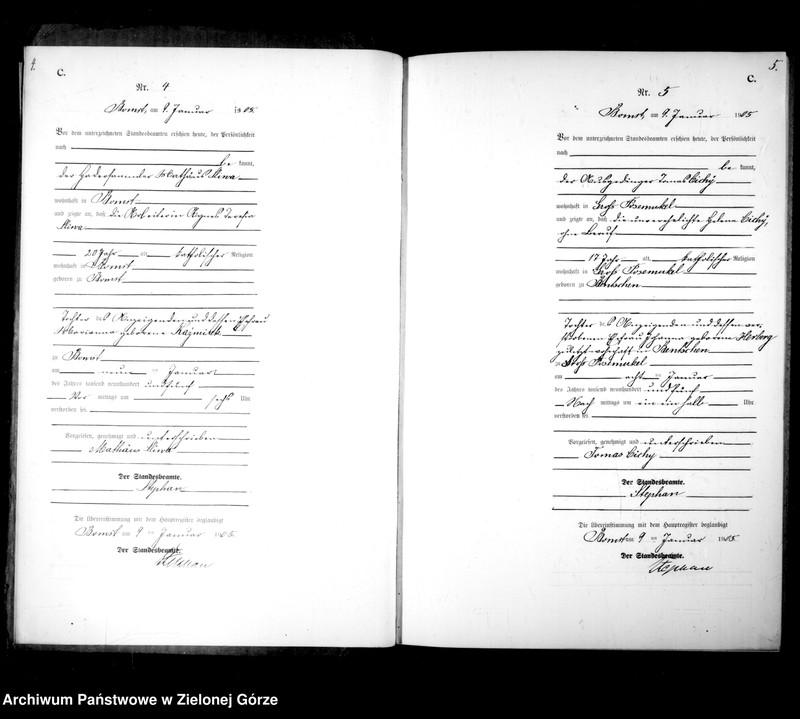 4.
C.
Nr. 4
Bomst, am 9. Januar 1905
Vor dem unterzeichneten Standesbeamten erschien heute, der Persönlichkeit
nach
be kannt,
der Hadersammler Mathäus
wohnhaft in Bomst
und zeigte an, daß die Arbeiterin Agnes
20 Jahr alt, katholischer Religion
wohnhaft in Bomst
geboren zu Bomst
Tochter des Anzeigenden und dessen Ehefrau
Marianna geborene
zu Bomst
am neun ten Januar
des Jahres tausend neunhundert und fünf
Vor mittags um sechs Uhr
verstorben sei.
Vorgelesen, genehmigt und unterschrieben
Mathäus
Der Standesbeamte.
Stephan
Die Übereinstimmung mit dem Hauptregister beglaubigt
Bomst am 9 ten Januar 1905
Der Standesbeamte.
Stephan
5.
C.
Nr. 5
Bomst, am 9. Januar 1905
Vor dem unterzeichneten Standesbeamten erschien heute, der Persönlichkeit
nach
be kannt,
der Ausgedinger Tomas Cichy
wohnhaft in Groß Posemukel
und zeigte an, daß die unverehelichte Helena Cichy,
ohne Beruf
17 Jahr alt, katholischer Religion
wohnhaft in Groß Posemukel
geboren zu Bentschen
Tochter des Anzeigenden und dessen ver-
storbenen Ehefrau Johanna geborene
zuletzt wohnhaft in Bentschen
zu Groß Posemukel
am acht ten Januar
des Jahres tausend neunhundert und fünf
Nach mittags um ein ein halb Uhr
verstorben sei.
Vorgelesen, genehmigt und unterschrieben
Tomas Cichy
Der Standesbeamte.
Stephan
Die Übereinstimmung mit dem Hauptregister beglaubigt
Bomst am 9 ten Januar 1905
Der Standesbeamte.
Stephan
Archiwum Państwowe w Zielonej Górze